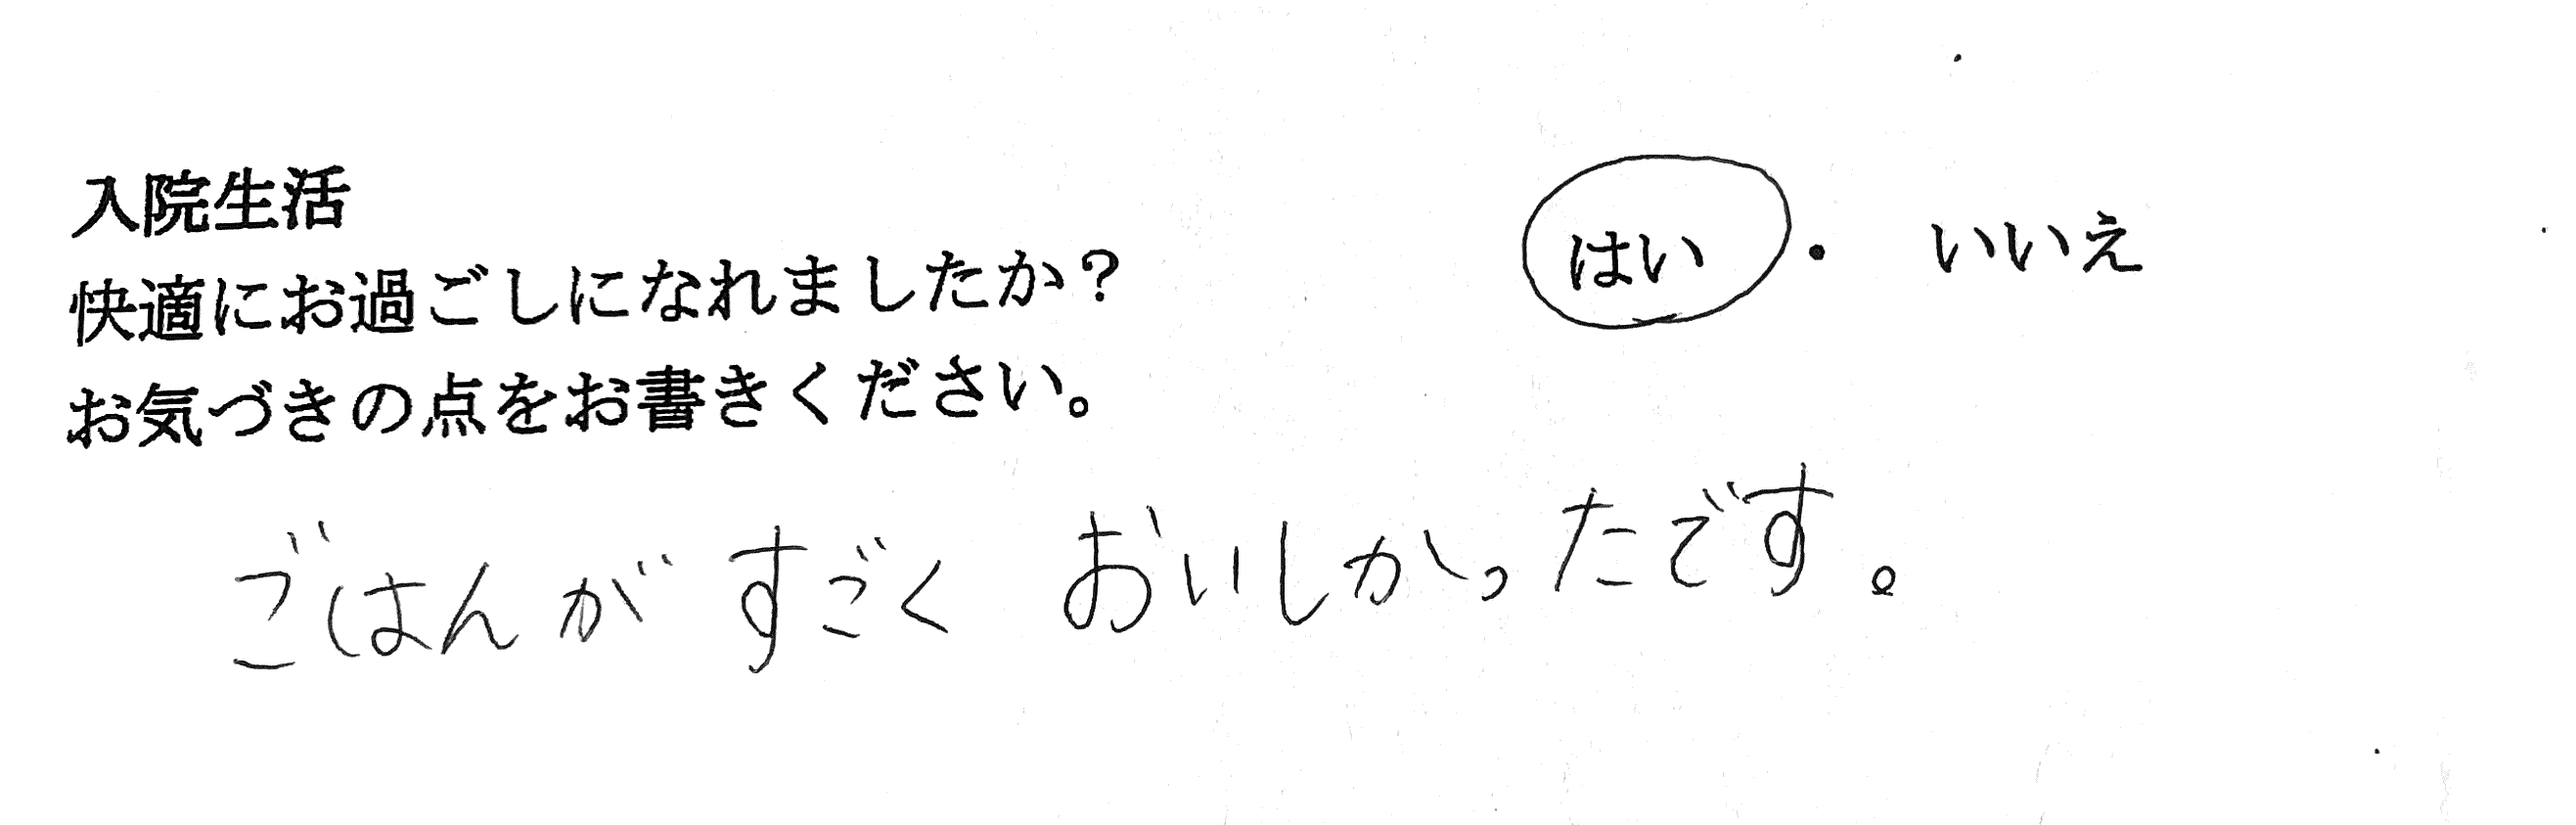 入院生活
快適にお過ごしになれましたか? はい ・ いいえ
お気づきの点をお書きください。
ごはんが すごく おいしかったです。